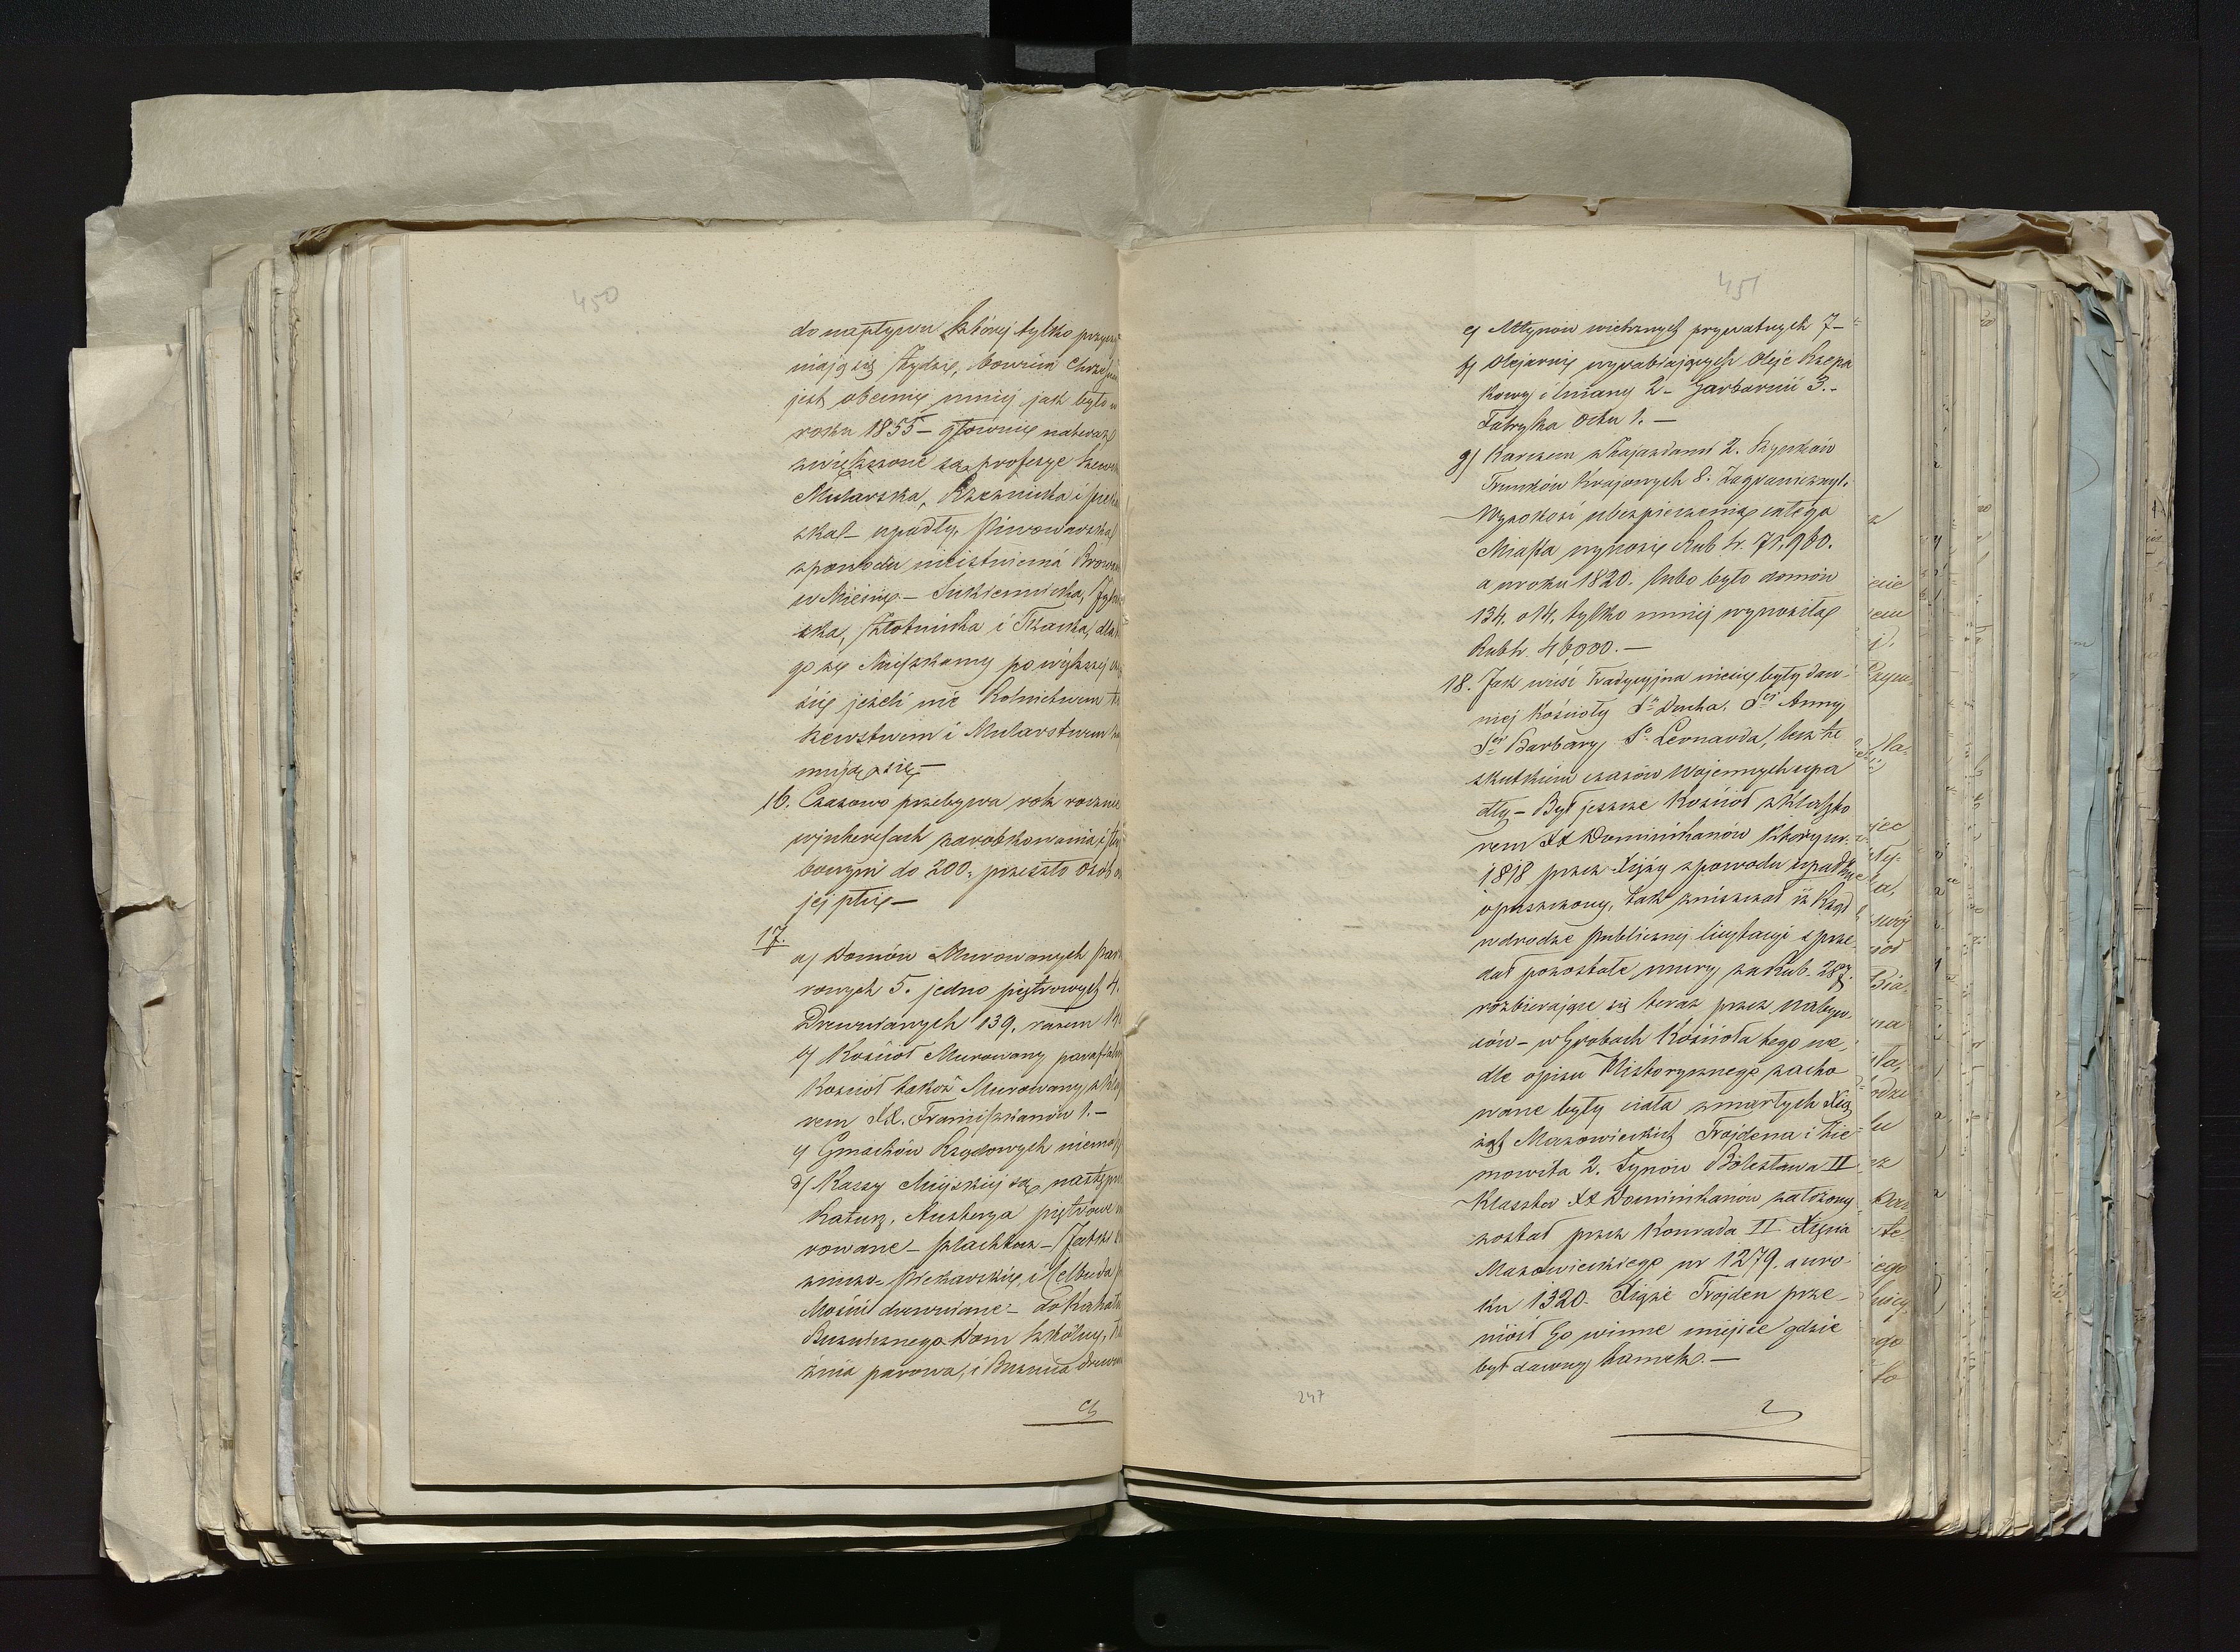 450
do napływu której tylko przyczy
niają się Żydzi, bowiem Chrześcian
jest obecnie mniej jak było w
roku 1855 – głównie nateraz
zwiększone są profesye Szewc
Mularska, Rzeznicka i piekar
ska – upadły, Piwowarska
zpowodu nieistnienia Browaru
w Mieście – Sukiennicka,
ska, Złotnicka i Tkacka, dla
go że Mieszkancy po większej czę
ści jeżeli nie Rolnictwem to
szewstwem i Mularstwem
mują się –
16. Czasowo przebywa rok rocznie
winteressach zarobkowania i słu
bowym do 200, przeszło osób o
jej płci –
17.
a) Domów Murowanych par
rowych 5. jedno piętrowych 4.
Drewnianych 139. razem 14
b) Kościoł Murowany parafialny
Kościoł takoż Murowany z kla
rem XX. Franciszkanów 1. –
c) Gmachów Rządowych niema
d) Kassy Miejskiej są następu
Ratusz, Austerya piętrowe
rowane – szlachtuz – Jatki
źniczo – piekarskie, i
Mostu drewniane – do
Buźniczego Dom Szkólny,
źnia parowa, i Buźnica drewn
e)
451
e) Młynów wietrznych prywatnych 7 –
f) Olejarnie wyrabiających Oleje Rzepa
kowy i lniany 2 – Garbarnii 3. –
Fabryka Octu 1. –
g) Karczem z Zajazdami 2. Szynków
Trunków Krajowych 8. Zagranicznyc.
Wysokość ubezpieczenia całego
Miasta wynosi Rub sr. 71,960.
a wroku 1820. lubo było domów
134, o 14, tylko mniej wynosiła
Rubsr. 46,000. –
18. Jak wieść tradycyjna niesie były daw-
niej Kościoły Sgo Ducha. Stej Anny
Stej Barbary, Sgo Leonarda, lecz te
skutkiem czasów Wojennych upa
dły – Był jeszcze Kościoł z Klaszto
rem XX Dominikanów który w r.
1818 przez Xięży zpowodu
opuszczony, tak zniszczał iż Rząd
wdrodze publicznej licytacyi sprze-
dał pozostałe mury za Rub. 287.
rozbierające się teraz przez nabyw-
ców – w Grobach Kościoła tego we,
dle opisu Historycznego zacho
wane były ciała zmarłych Xią
żąt Mazowieckich Trojdena i Zie-
mowita 2. Synów Bolesława II
Klasztor XX Dominikanów założony
został przez Konrada II Xięcia
Mazowieckiego w 1279. a w ro-
ku 1320. Xiąże Trojden prze-
niosł Go winne miejsce gdzie
był dawny Zamek. –
247